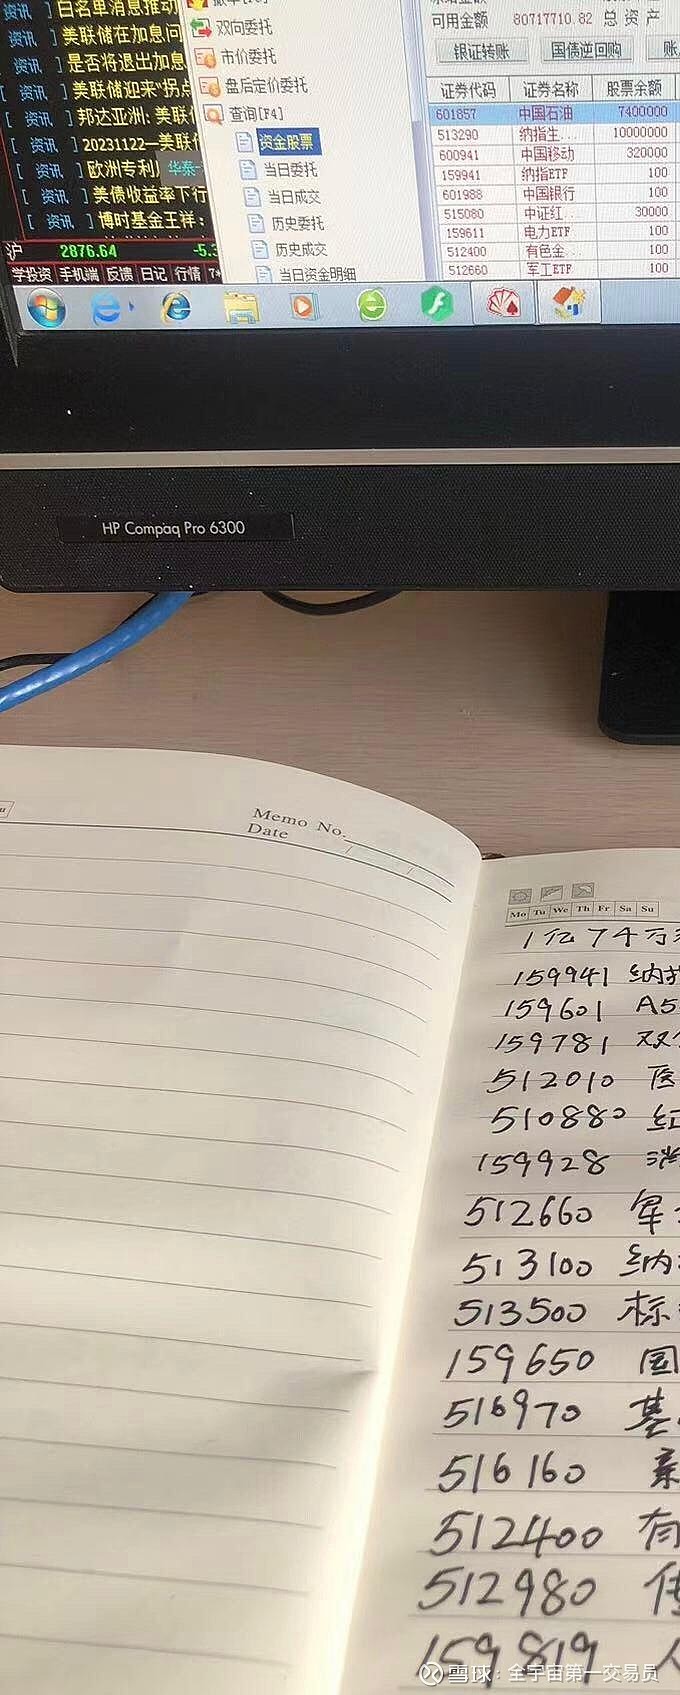 资讯 ] 白名单消息推动
资讯 ] 美联储在加息问
资讯 ] 是否将退出加息
[ 资讯 ] 美联储迎来“拐点
[ 资讯 ] 邦达亚洲: 美联储
[ 资讯 ] 20231122—美联储
[ 资讯 ] 欧洲专利
华泰
[ 资讯 ] 美债收益率下行
[ 资讯 ] 博时基金王祥:
沪 2876.64 -5.3
学投资 手机端 反馈 日记 行情 7*
双向委托
市价委托
盘后定价委托
查询[F4]
资金股票
当日委托
当日成交
历史委托
历史成交
当日资金明细
可用金额 80717710.82 总 资 产
银证转账 国债逆回购 账
证券代码 证券名称 股票余额
601857 中国石油 7400000
513290 纳指生... 10000000
600941 中国移动 320000
159941 纳指ETF 100
601988 中国银行 100
515080 中证红... 30000
159611 电力ETF 100
512400 有色金... 100
512660 军工ETF 100
HP Compaq Pro 6300
Memo No.
Date
Mo Tu We Th Fr Sa Su
1亿74万
159941 纳指
159601 A5
159781 双
512010 医
510880 红
159928 消
512660 军
513100 纳
513500 标
159650 国
516970 基
516160 新
512400 有
512980 传
159819 人
雪球: 全宇宙第一交易员